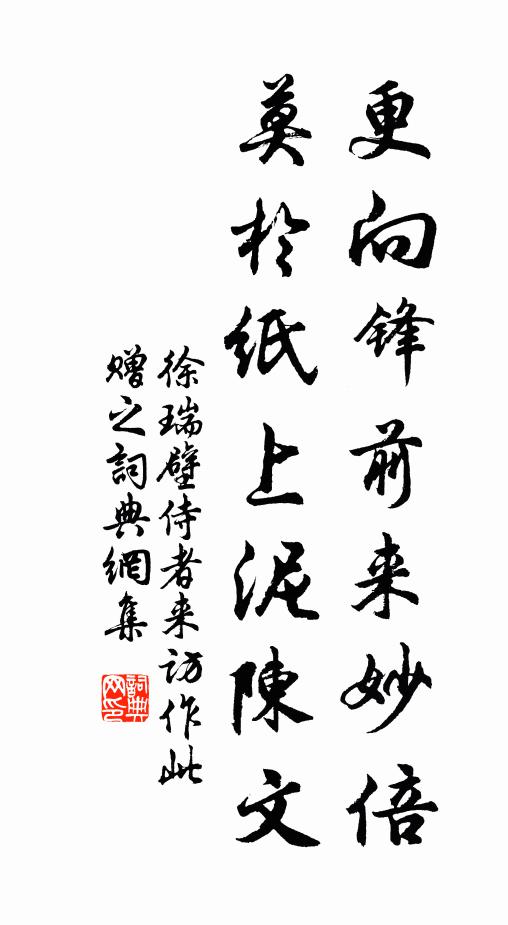 更向锋前来妙倍
莫於纸上泥陳文
徐瑞壁侍者来访作此
赠之詞典網集
詞典网印